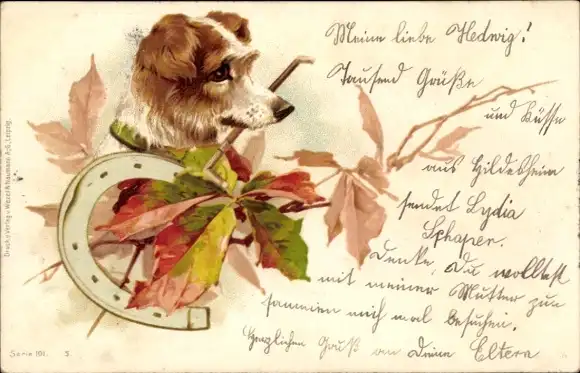 Meine liebe Hedwig!
Tausend Grüße
und Küsse
aus Hildesheim
sendet Lydia
Schaper.
Denke, Du wolltest
mit meiner Mutter zu
sammen mich mal besuchen.
Herzlichen Gruß an Deine Eltern
Druck u. Verlag v. Wezel & Naumann A.-G., Leipzig.
Serie 101. 5.